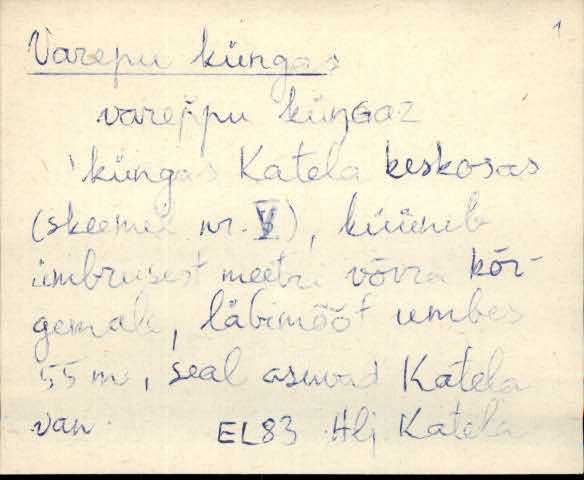 1
Varepu küngas
vareppu küŋGaz
küngas Katela keskosas
(skeemil nr. V), küünib
ümbrusest meetri võrra kõr-
gemale, läbimõõt umbes
55 m, seal asuvad Katela
van. EL83 Hlj Katela